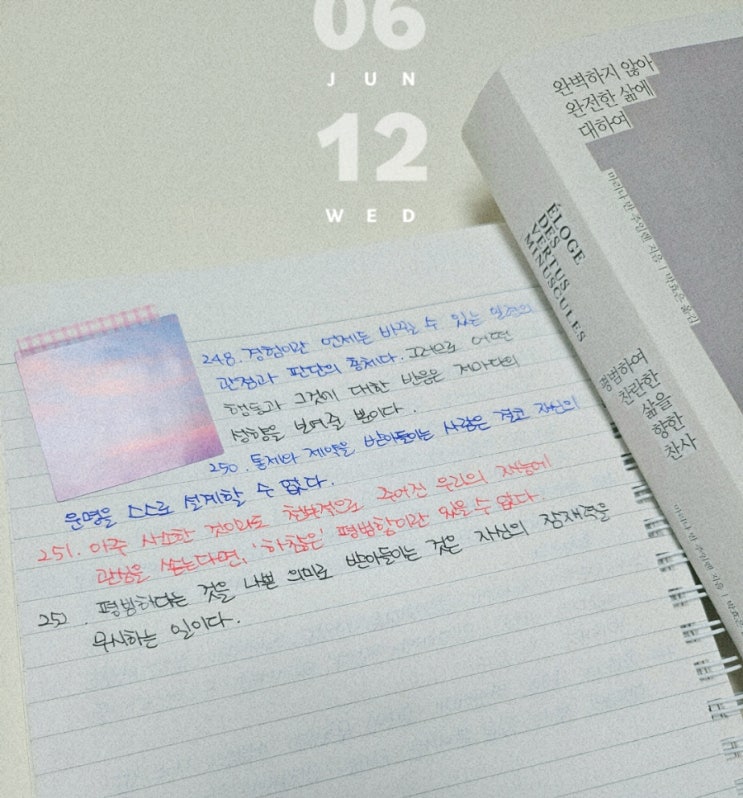 06
JUN
12
WED
완벽하지 않아
완전한 삶에
대하여
마리나 반 주일렌 지음 | 박효은 옮김
ÉLOGE
DES
VERTUS
MINUSCULES
평범하여
찬란한
삶을
향한
찬사
마리나 반 주일렌 지음 | 박효은
248. 경험이란 언제든 바뀔 수 있는 일련의
관점과 판단의 총체다. 그러므로 어떤
행동과 그것에 대한 반응은 저마다의
성향을 보여줄 뿐이다.
250. 통제와 제약을 받아들이는 사람은 결코 자신의
운명을 스스로 설계할 수 없다.
251. 아주 사소한 것이라도 천부적으로 주어진 우리의 재능에
관심을 쏟는다면, '하찮은' 평범함이란 있을 수 없다
252. 평범하다는 것을 나쁜 의미로 받아들이는 것은 자신의 잠재력을
무시하는 일이다.